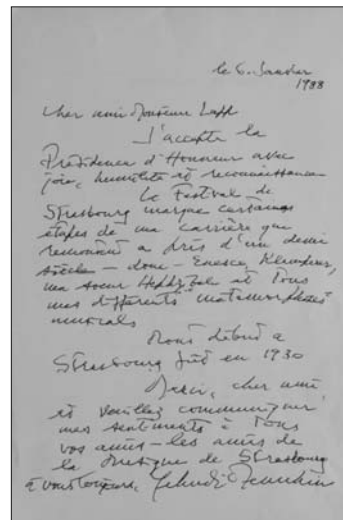 le 6. Janvier
1988
Cher ami Monsieur Lapp
J'accepte la
Présidence d'Honneur avec
joie, humilité et reconnaissance
Le Festival de
Strasbourg marque certaines
étapes de ma carrière que
remontent a près d'un demi
siècle – donc – Enescu, Klemperer,
ma soeur Hephzibah et tous
mes différents "métamorphoses"
musicals
Mons début a
Strasbourg fut en 1930
Merci, cher ami,
et veuillez communiquer
mes sentiments à tous
vos amis – les amis de
la Musique de Strasbourg
à vous toujours, Yehudi Menuhin